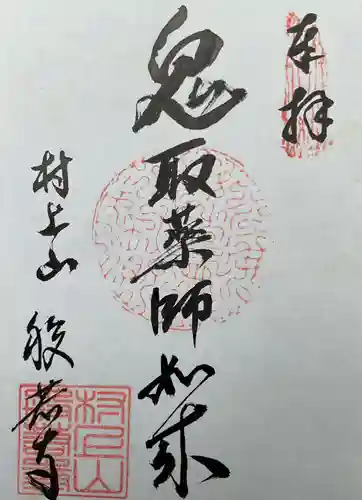 奉拝
鬼取薬師如来
村上山 般若寺
村上山
般若寺